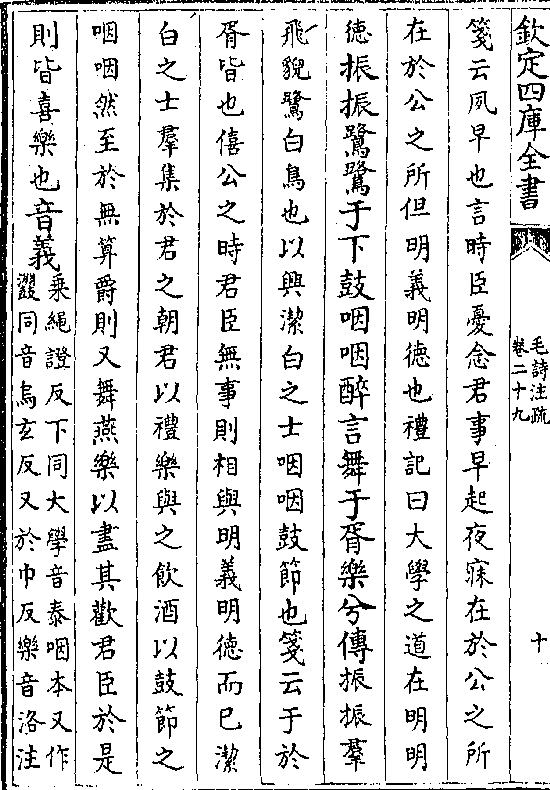 欽定四庫全書
毛詩注疏
卷二十九
十
箋云夙早也言時臣憂念君事早起夜寐在於公之所
在於公之所但明義明德也禮記曰大學之道在明明
德振振鷺鷺于下鼓咽咽醉言舞于胥樂兮傳振振羣
飛貌鷺白鳥也以興潔白之士咽咽鼓節也箋云于於
胥皆也僖公之時君臣無事則相與明義明德而已潔
白之士羣集於君之朝君以禮樂與之飲酒以鼓節之
咽咽然至於無算爵則又舞燕樂以盡其歡君臣於是
則皆喜樂也音義
乗繩證反下同大學音泰咽本又作
鼝同音烏玄反又於巾反樂音洛注